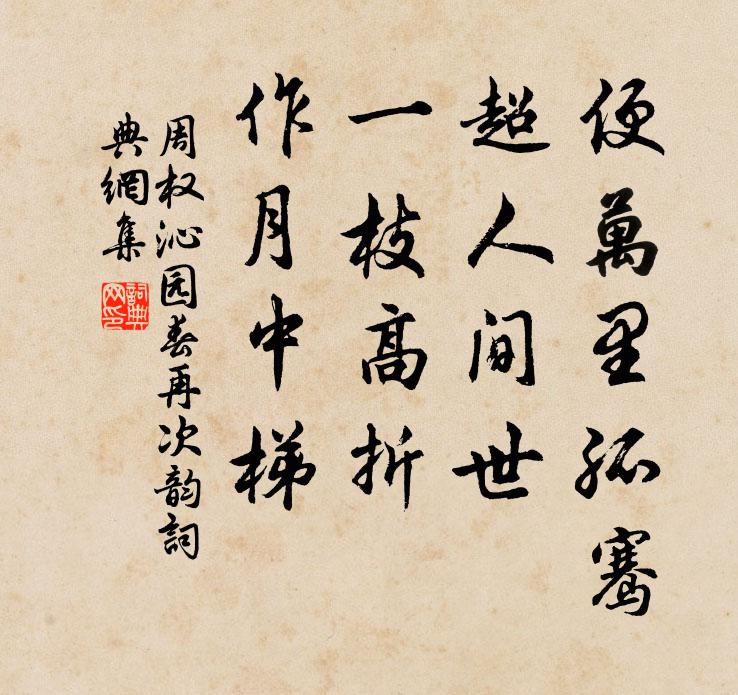 便萬里孤騫
超人间世
一枝高折
作月中梯
周权沁园春再次韵詞
典網集
詞典网印